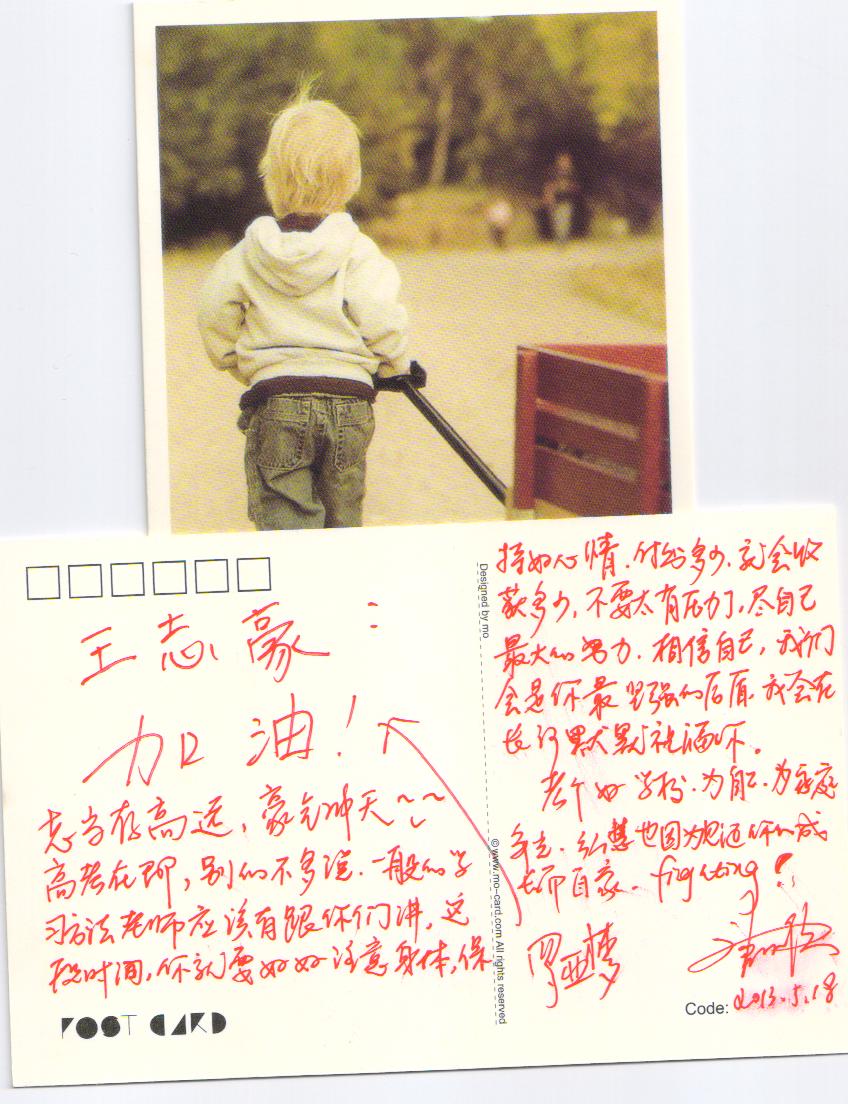 王志豪：
加油！
志当存高远，豪气冲天~~
高考在即，别的不多说.一般的学
习方法老师应该有跟你们讲，这
段时间，你就要好好注意身体，保
POST CARD
Designed by mo
©www.mo-card.com All rights reserved
持好心情.付出多少.就会收
获多少，不要太有压力，尽自己
最大的努力.相信自己，我们
会是你最坚强的后盾.我会在
长河默默祝福你。
考个好学校.为自己.为家庭
争光.弘慧也因为见证你的成
长而自豪. fighting！
罗亚梦
Code: 2013.5.18